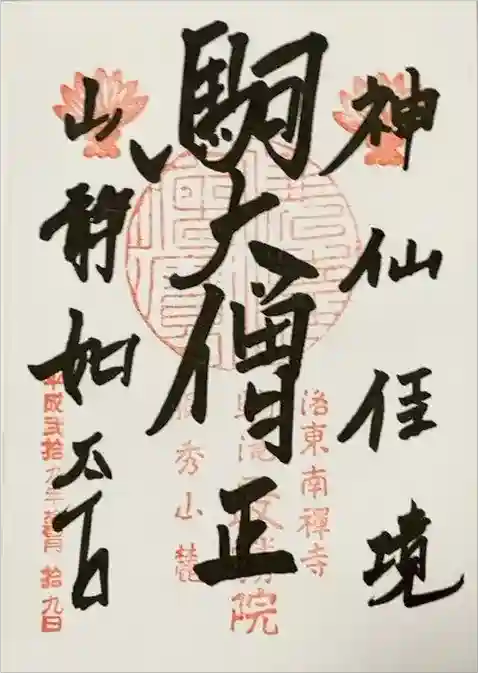 神仙佳境
駒大僧正
山静如太古
洛東南禪寺
駒滝最勝院
秀山麓
平成弐拾九年 月 拾九日